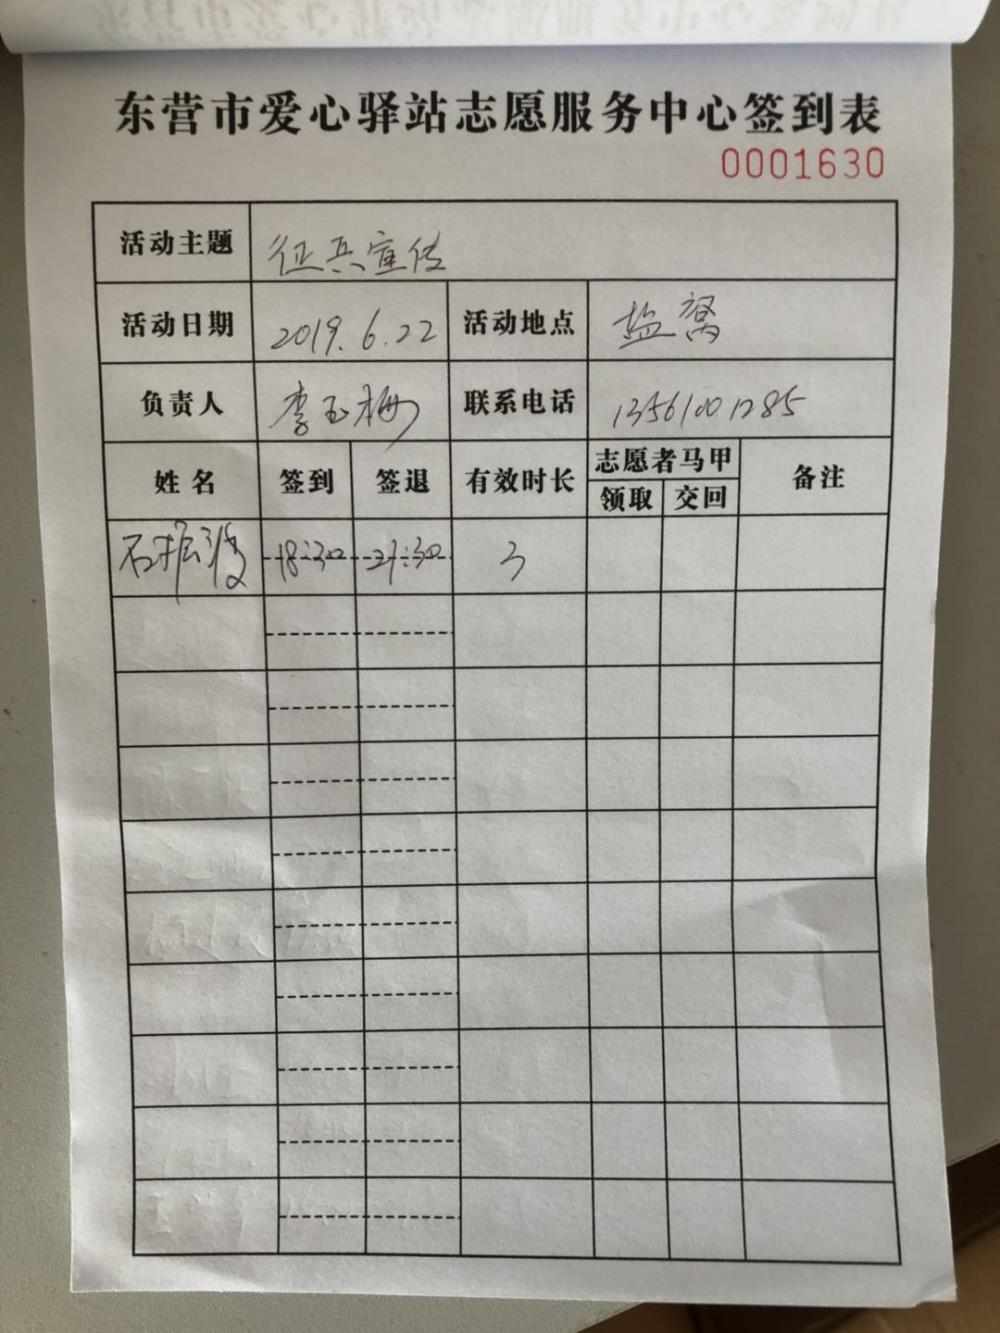 东营市爱心驿站志愿服务中心签到表
0001630
活动主题 征兵宣传
活动日期 2019.6.22 活动地点 盐窝
负责人 李玉梅 联系电话 13561001285
姓名 签到 签退 有效时长 志愿者马甲 备注
领取 交回
石振波 18:30 21:30 3